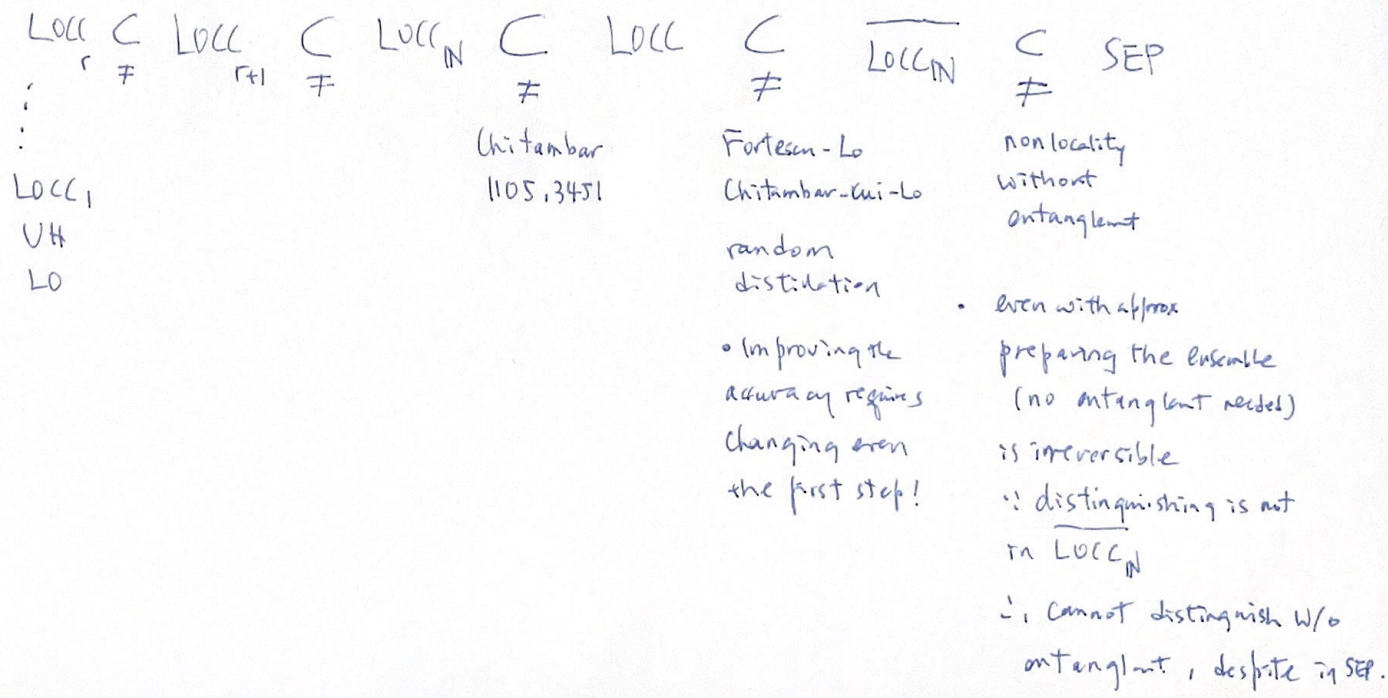 LOCC_r ⊊ LOCC_{r+1} ⊊ LOCC_ℕ ⊊ LOCC ⊊ \overline{LOCC_ℕ} ⊊ SEP
⋮
LOCC_1
UH
LO
Chitambar
1105.3451
Fortescu-Lo
Chitambar-Cui-Lo
random
distillation
• Improving the
accuracy requires
changing even
the first step!
nonlocality
without
entanglemt
• even with approx
preparing the ensemble
(no entanglemt needed)
is irreversible
∵ distinguishing is not
in \overline{LOCC_ℕ}
∴ cannot distinguish w/o
entanglmt, despite in SEP.